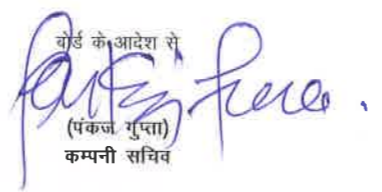 बोर्ड के आदेश से
(पंकज गुप्ता)
कम्पनी सचिव